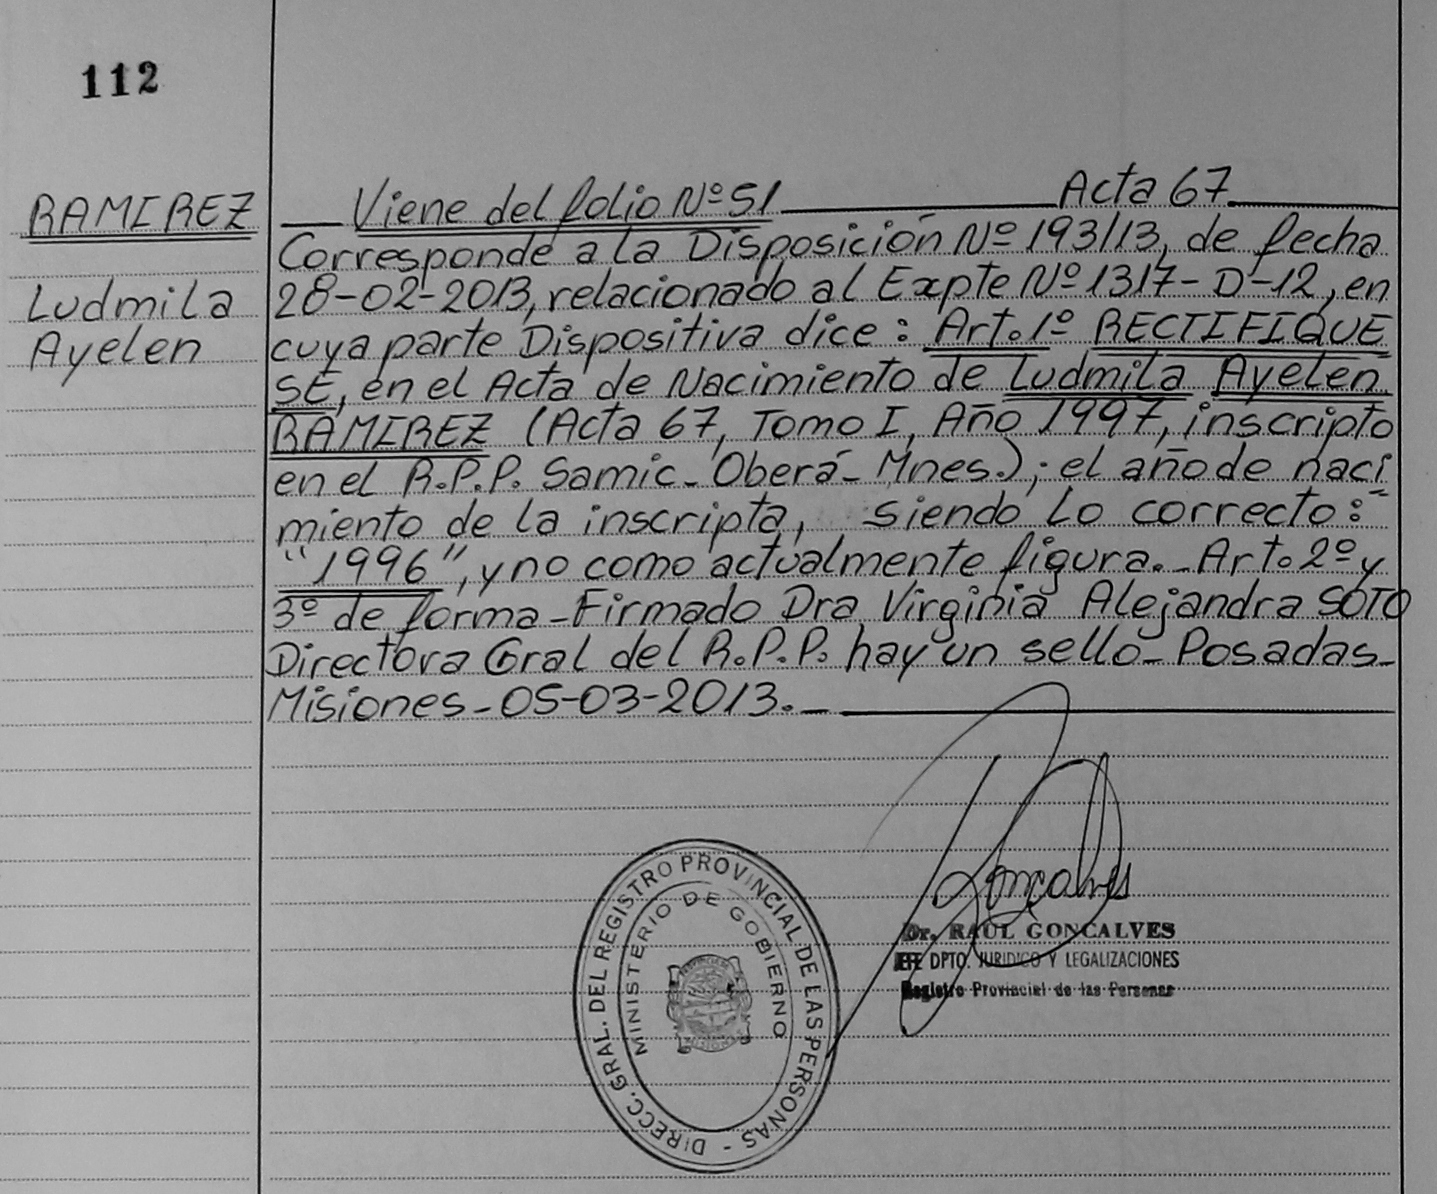 112
RAMIREZ
Ludmila
Ayelen
Viene del folio Nº 51 Acta 67
Corresponde a la Disposición Nº 193/13, de fecha
28-02-2013, relacionado al Expte Nº 1317-D-12, en
cuya parte Dispositiva dice: Art. 1º RECTIFIQUE
SE, en el Acta de Nacimiento de Ludmila Ayelen
RAMIREZ (Acta 67, Tomo I, Año 1997, inscripto
en el R.P.P. Samic - Oberá - Mnes.); el año de naci
miento de la inscripta, siendo lo correcto:
"1996", y no como actualmente figura.- Art. 2º y
3º de forma - Firmado Dra Virginia Alejandra SOTO
Directora Gral del R.P.P. hay un sello - Posadas -
Misiones - 05-03-2013.-
DIRECC. GRAL. DEL REGISTRO PROVINCIAL DE LAS PERSONAS -
MINISTERIO DE GOBIERNO
Goncalves
Dr. RAUL GONCALVES
JEFE DPTO. JURIDICO Y LEGALIZACIONES
Registro Provincial de las Personas